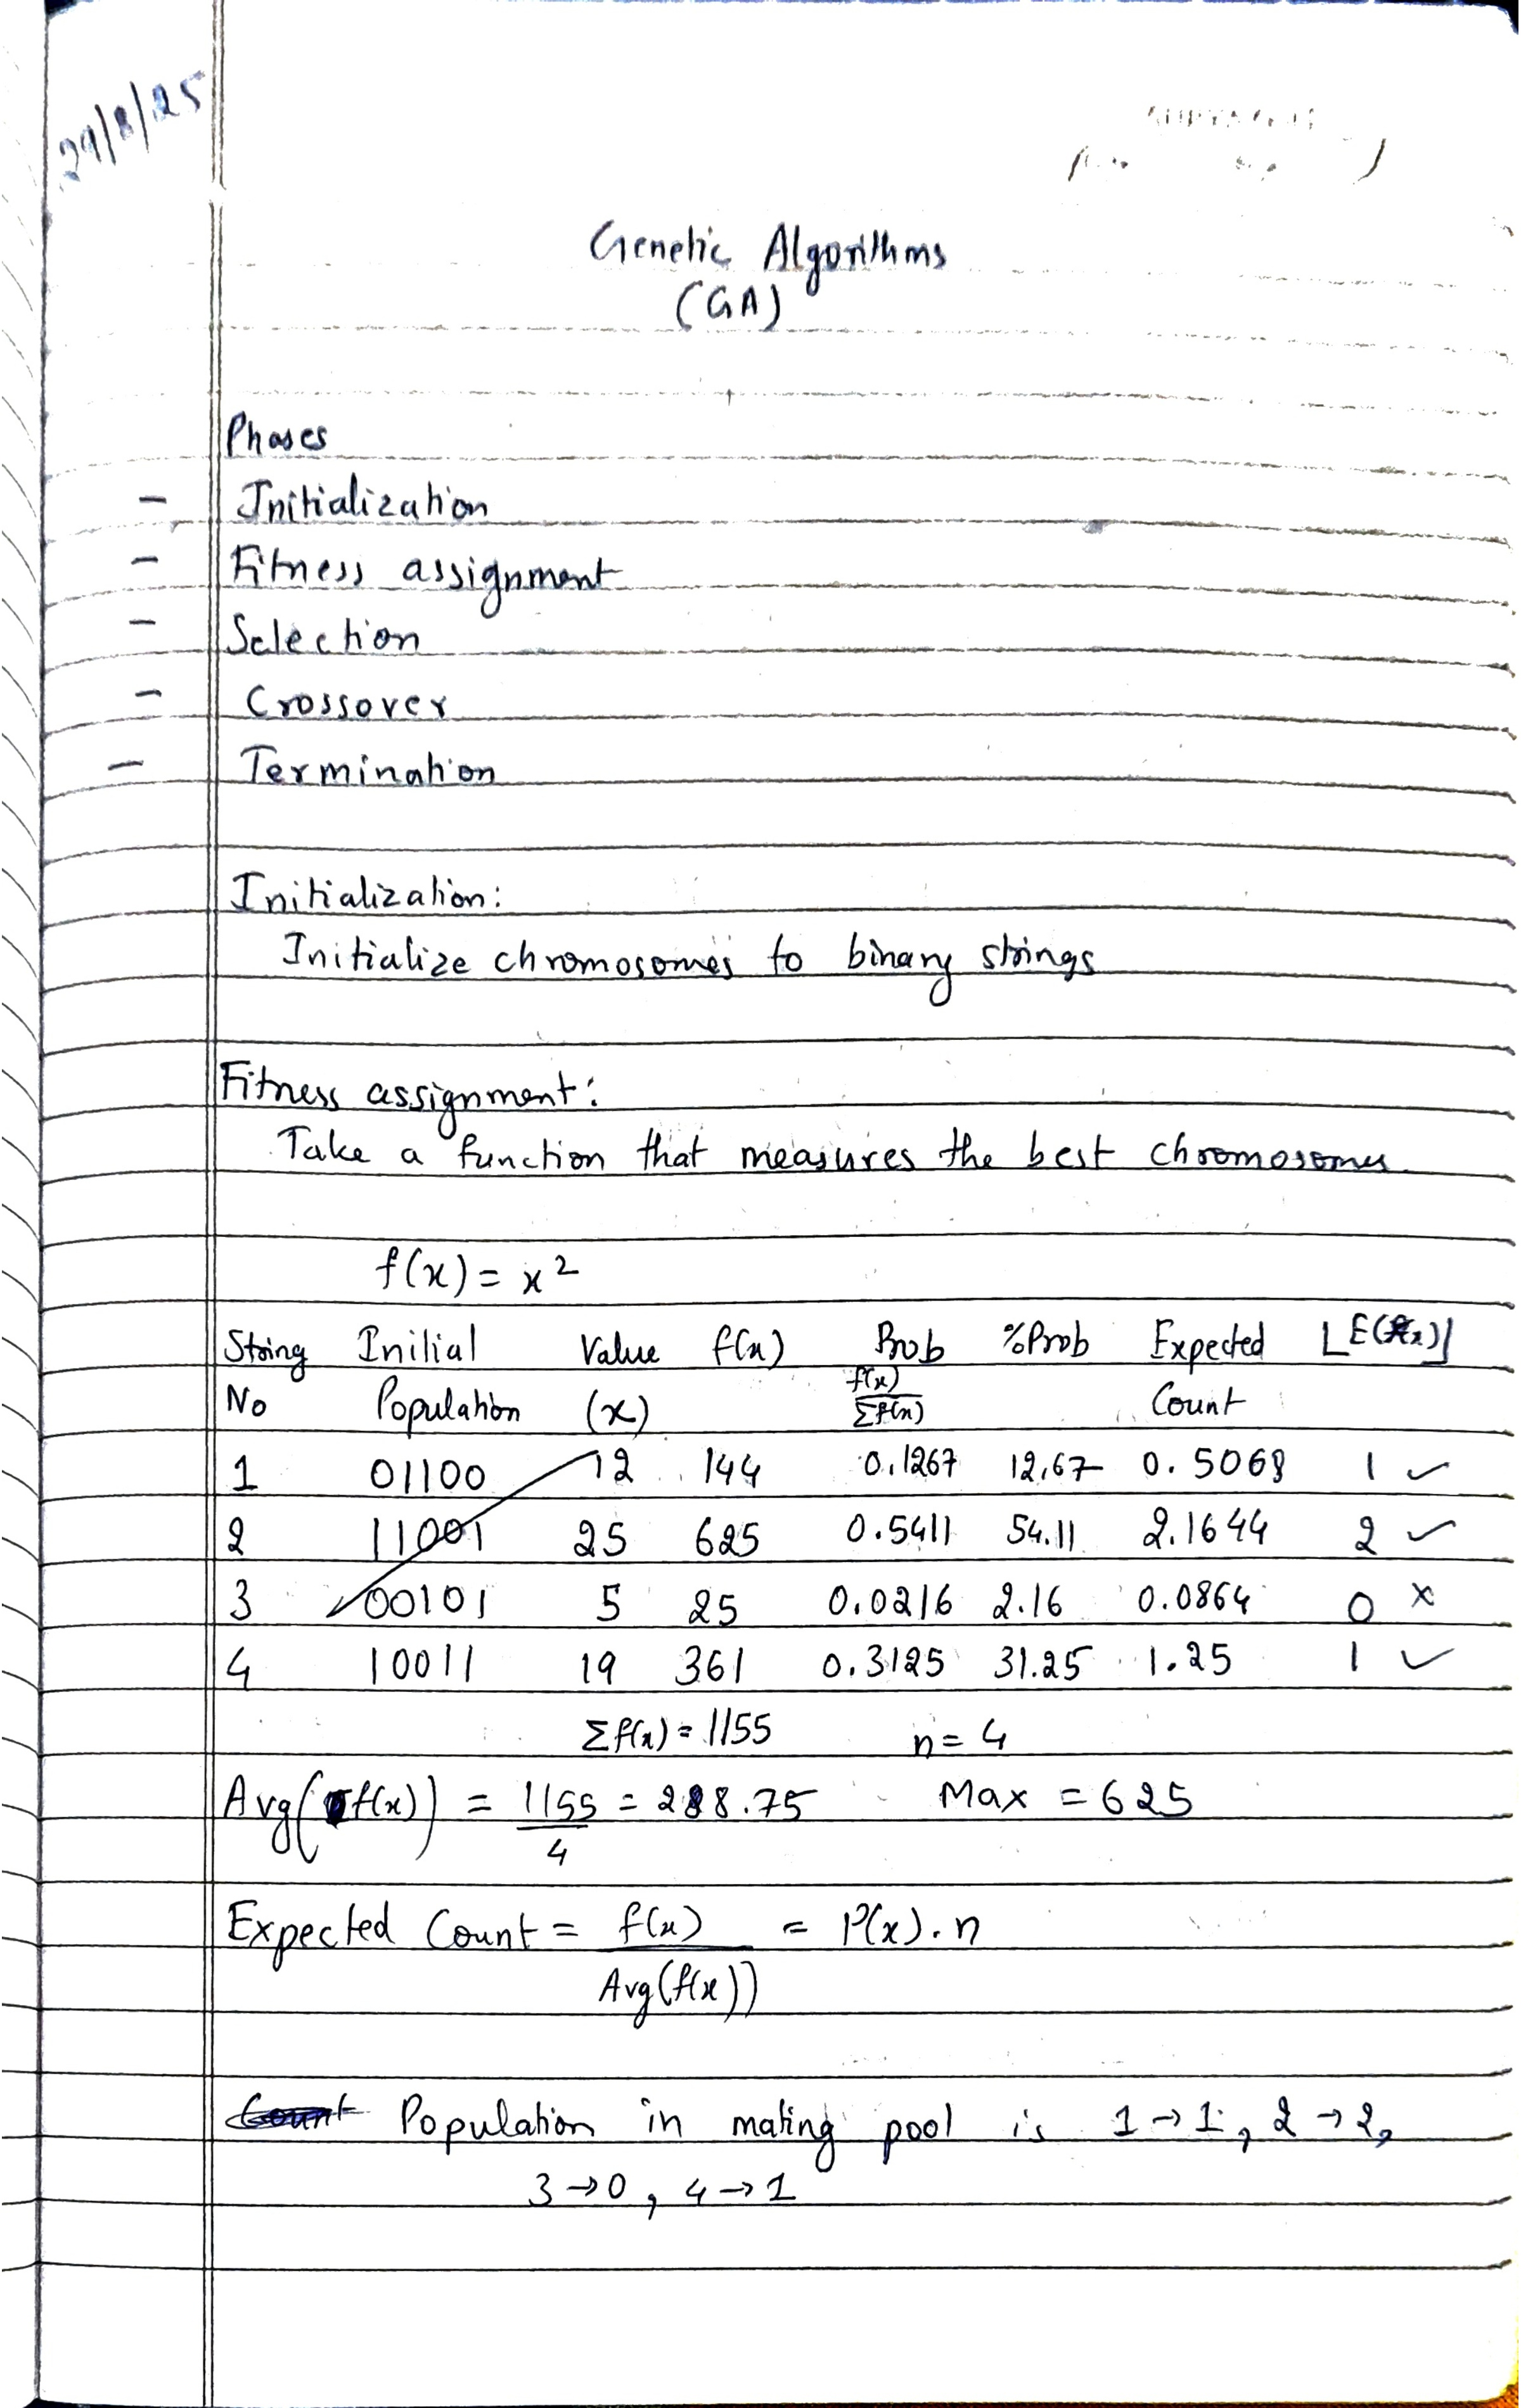 29/8/25
Genetic Algorithms
(GA)
Phases
- Initialization
- Fitness assignment
- Selection
- Crossover
- Termination
Initialization:
Initialize chromosomes to binary strings
Fitness assignment:
Take a function that measures the best chromosomes
f(x) = x²
String Initial Value f(x) Prob %Prob Expected ⌊E(x)⌋
No Population (x) f(x)/Σf(x) Count
1 01100 12 144 0.1267 12.67 0.5068 1 ✓
2 11001 25 625 0.5411 54.11 2.1644 2 ✓
3 00101 5 25 0.0216 2.16 0.0864 0 ×
4 10011 19 361 0.3125 31.25 1.25 1 ✓
Σf(x) = 1155 n = 4
Avg(f(x)) = 1155/4 = 288.75 Max = 625
Expected Count = f(x)/Avg(f(x)) = P(x).n
Population in mating pool is 1→1, 2→2,
3→0, 4→1